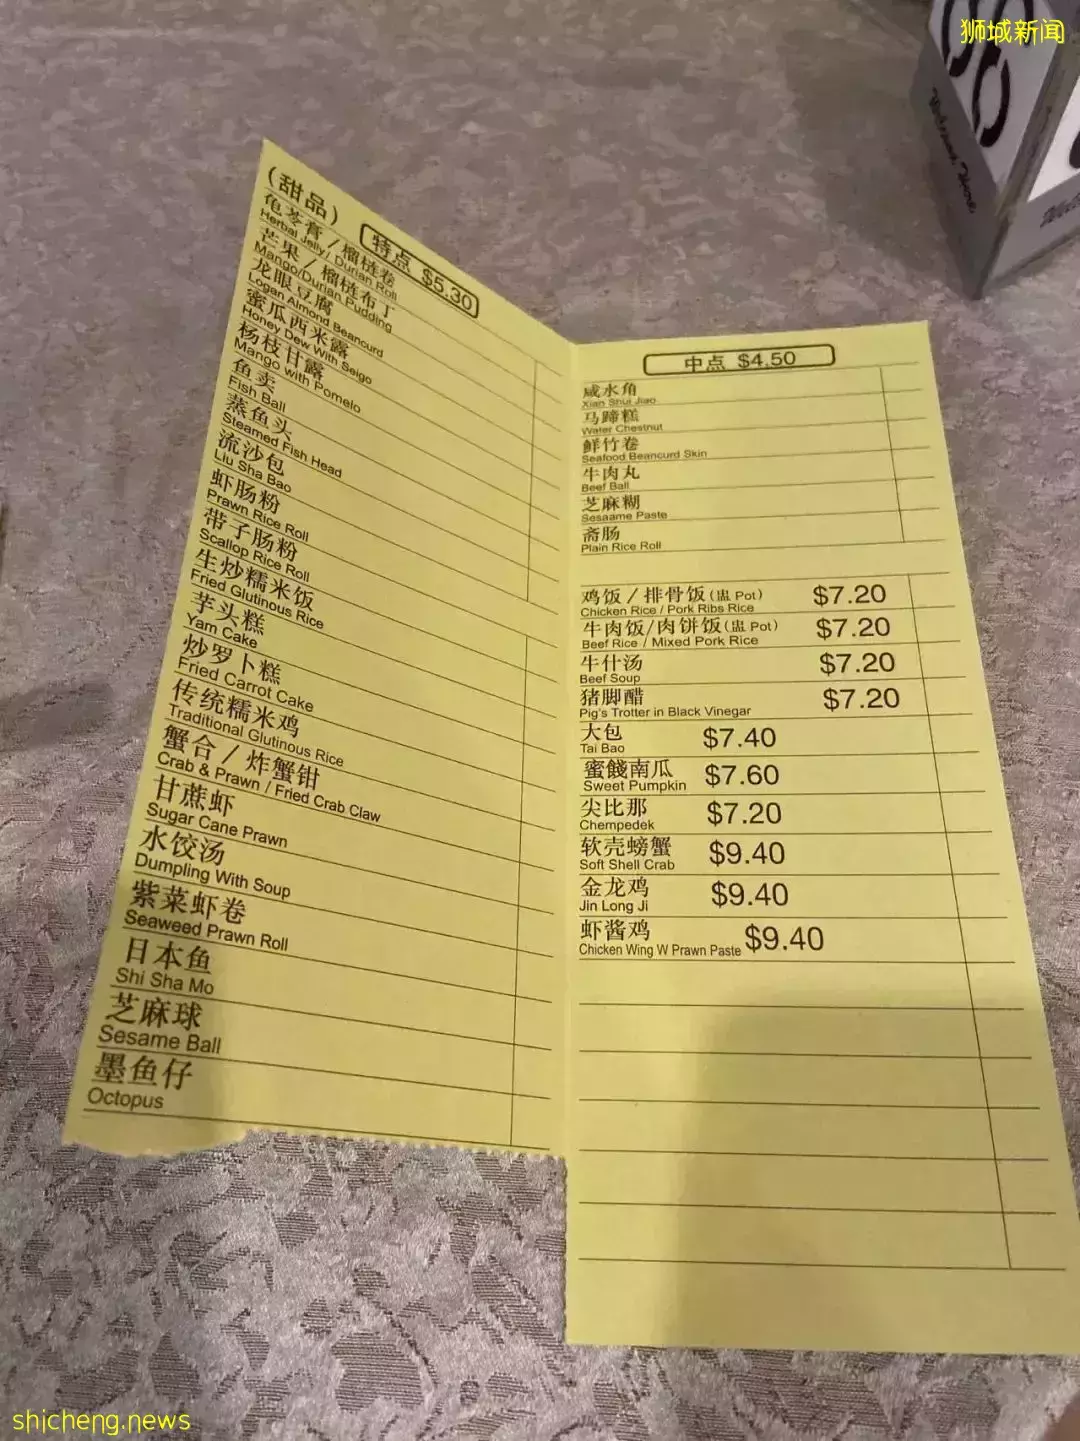 狮城新闻
Welcome Home
(甜品)
特点 $5.30
龟苓膏／榴梿卷
Herbal Jelly/ Durian Roll
芒果／榴梿布丁
Mango/Durian Pudding
龙眼豆腐
Logan Almond Beancurd
蜜瓜西米露
Honey Dew With Seigo
杨枝甘露
Mango with Pomelo
鱼卖
Fish Ball
蒸鱼头
Steamed Fish Head
流沙包
Liu Sha Bao
虾肠粉
Prawn Rice Roll
带子肠粉
Scallop Rice Roll
生炒糯米饭
Fried Glutinous Rice
芋头糕
Yam Cake
炒罗卜糕
Fried Carrot Cake
传统糯米鸡
Traditional Glutinous Rice
蟹合／炸蟹钳
Crab & Prawn / Fried Crab Claw
甘蔗虾
Sugar Cane Prawn
水饺汤
Dumpling With Soup
紫菜虾卷
Seaweed Prawn Roll
日本鱼
Shi Sha Mo
芝麻球
Sesame Ball
墨鱼仔
Octopus
中点 $4.50
咸水角
Xian Shui Jiao
马蹄糕
Water Chestnut
鲜竹卷
Seafood Beancurd Skin
牛肉丸
Beef Ball
芝麻糊
Sesaame Paste
斋肠
Plain Rice Roll
鸡饭／排骨饭(盅 Pot) $7.20
Chicken Rice / Pork Ribs Rice
牛肉饭/肉饼饭(盅 Pot) $7.20
Beef Rice / Mixed Pork Rice
牛什汤 $7.20
Beef Soup
猪脚醋 $7.20
Pig's Trotter in Black Vinegar
大包 $7.40
Tai Bao
蜜餞南瓜 $7.60
Sweet Pumpkin
尖比那 $7.20
Chempedek
软壳螃蟹 $9.40
Soft Shell Crab
金龙鸡 $9.40
Jin Long Ji
虾酱鸡 $9.40
Chicken Wing W Prawn Paste
shicheng.news